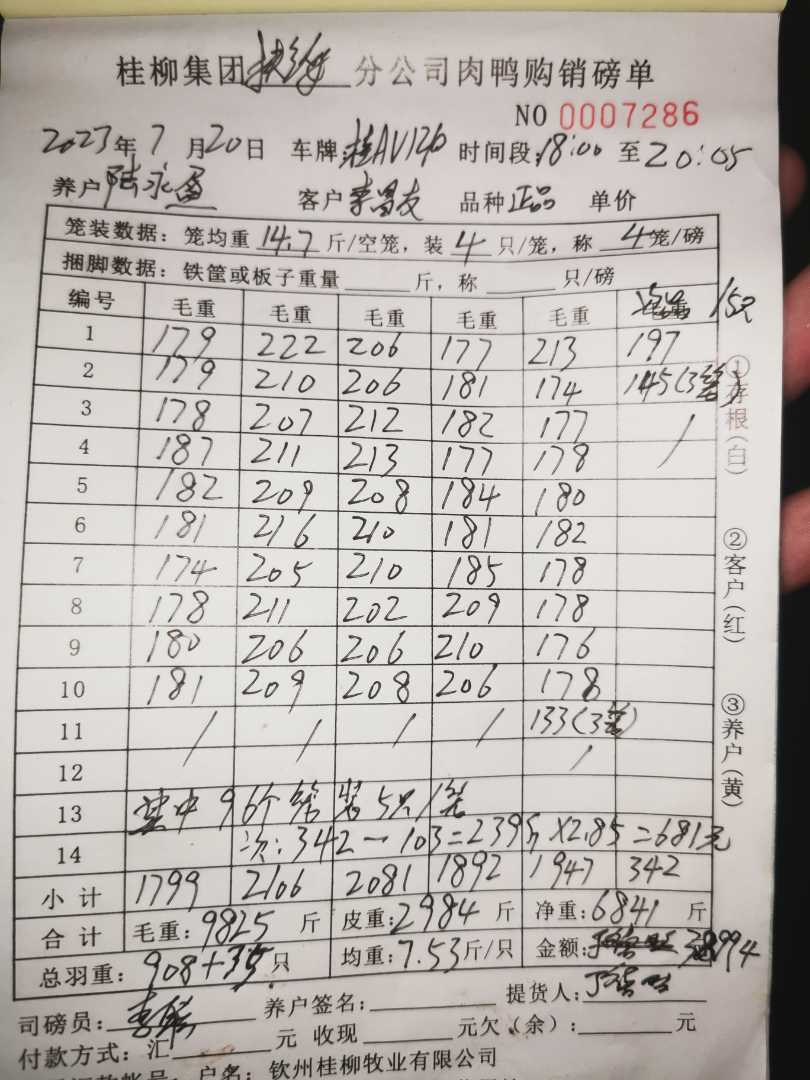 桂柳集团 分公司肉鸭购销磅单
NO 0007286
2023年7月20日 车牌:桂AV126 时间段:18:00至20:05
养户 陆永 客户李昌友 品种正品 单价
笼装数据：笼均重 14.7 斤/空笼，装 4 只/笼，称 4笼/磅
捆脚数据：铁筐或板子重量 斤，称 只/磅
编号 毛重 毛重 毛重 毛重 毛重 15只
1 179 222 206 177 213 197
2 179 210 206 181 174 145(3笼)
3 178 207 212 182 177 /
4 187 211 213 177 178
5 182 209 208 184 180
6 181 216 210 181 182
7 174 205 210 185 178
8 178 211 202 209 178
9 180 206 206 210 176
10 181 209 208 206 178
11 / / / / 133(3笼)
12 /
13 其中96个笼装5只/笼
14 次:342-103=239斤×2.85=681元
小计 1799 2106 2081 1892 1947 342
合计 毛重:9825 斤 皮重:2984 斤 净重:6841 斤
总羽重: 908+35只 均重:7.53斤/只 金额:
司磅员: 养户签名: 提货人:
付款方式:汇 元 收现 元欠(余): 元
户名:钦州桂柳牧业有限公司
①存根(白)
②客户(红)
③养户(黄)